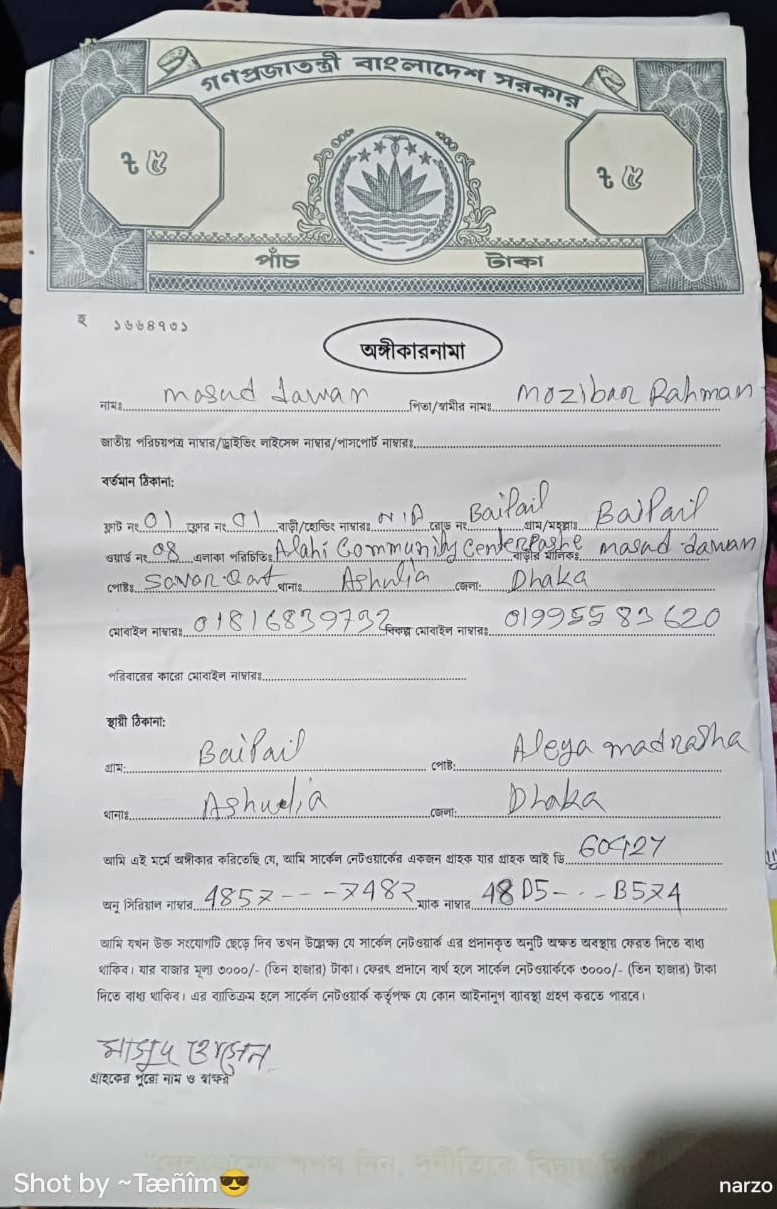 গণপ্রজাতন্ত্রী বাংলাদেশ সরকার
৳ ৫ ৳ ৫
পাঁচ টাকা
হ ১৬৬৪৭৩১
অঙ্গীকারনামা
নামঃ masud Jawan পিতা/স্বামীর নামঃ Moziban Rahman
জাতীয় পরিচয়পত্র নাম্বার/ড্রাইভিং লাইসেন্স নাম্বার/পাসপোর্ট নাম্বারঃ
বর্তমান ঠিকানা:
ফ্লাট নং 01 ফ্লোর নং 01 বাড়ী/হোল্ডিং নাম্বারঃ N/A রোড নং Baipail গ্রাম/মহল্লাঃ Baipail
ওয়ার্ড নং 08 এলাকা পরিচিতিঃ Alahi Community Center Pashe বাড়ীর মালিকঃ masud Jawan
পোষ্টঃ Savar থানাঃ Ashulia জেলা: Dhaka
মোবাইল নাম্বারঃ 01816839732 বিকল্প মোবাইল নাম্বারঃ 01995583620
পরিবারের কারো মোবাইল নাম্বারঃ
স্থায়ী ঠিকানা:
গ্রাম: Baipail পোষ্ট: Aleya madrasha
থানাঃ Ashulia জেলা: Dhaka
আমি এই মর্মে অঙ্গীকার করিতেছি যে, আমি সার্কেল নেটওয়ার্কের একজন গ্রাহক যার গ্রাহক আই ডি 60427
অনু সিরিয়াল নাম্বার 4857---7482 ম্যাক নাম্বার 48D5---B574
আমি যখন উক্ত সংযোগটি ছেড়ে দিব তখন উল্লেক্ষ্য যে সার্কেল নেটওয়ার্ক এর প্রদানকৃত অনুটি অক্ষত অবস্থায় ফেরত দিতে বাধ্য
থাকিব। যার বাজার মূল্য ৩০০০/- (তিন হাজার) টাকা। ফেরৎ প্রদানে ব্যর্থ হলে সার্কেল নেটওয়ার্ককে ৩০০০/- (তিন হাজার) টাকা
দিতে বাধ্য থাকিব। এর ব্যতিক্রম হলে সার্কেল নেটওয়ার্ক কর্তৃপক্ষ যে কোন আইনানুগ ব্যাবস্থা গ্রহণ করতে পারবে।
মাসুদ হোসেন
গ্রাহকের পুরো নাম ও স্বাক্ষর
Shot by ~Tæñîm😎
narzo